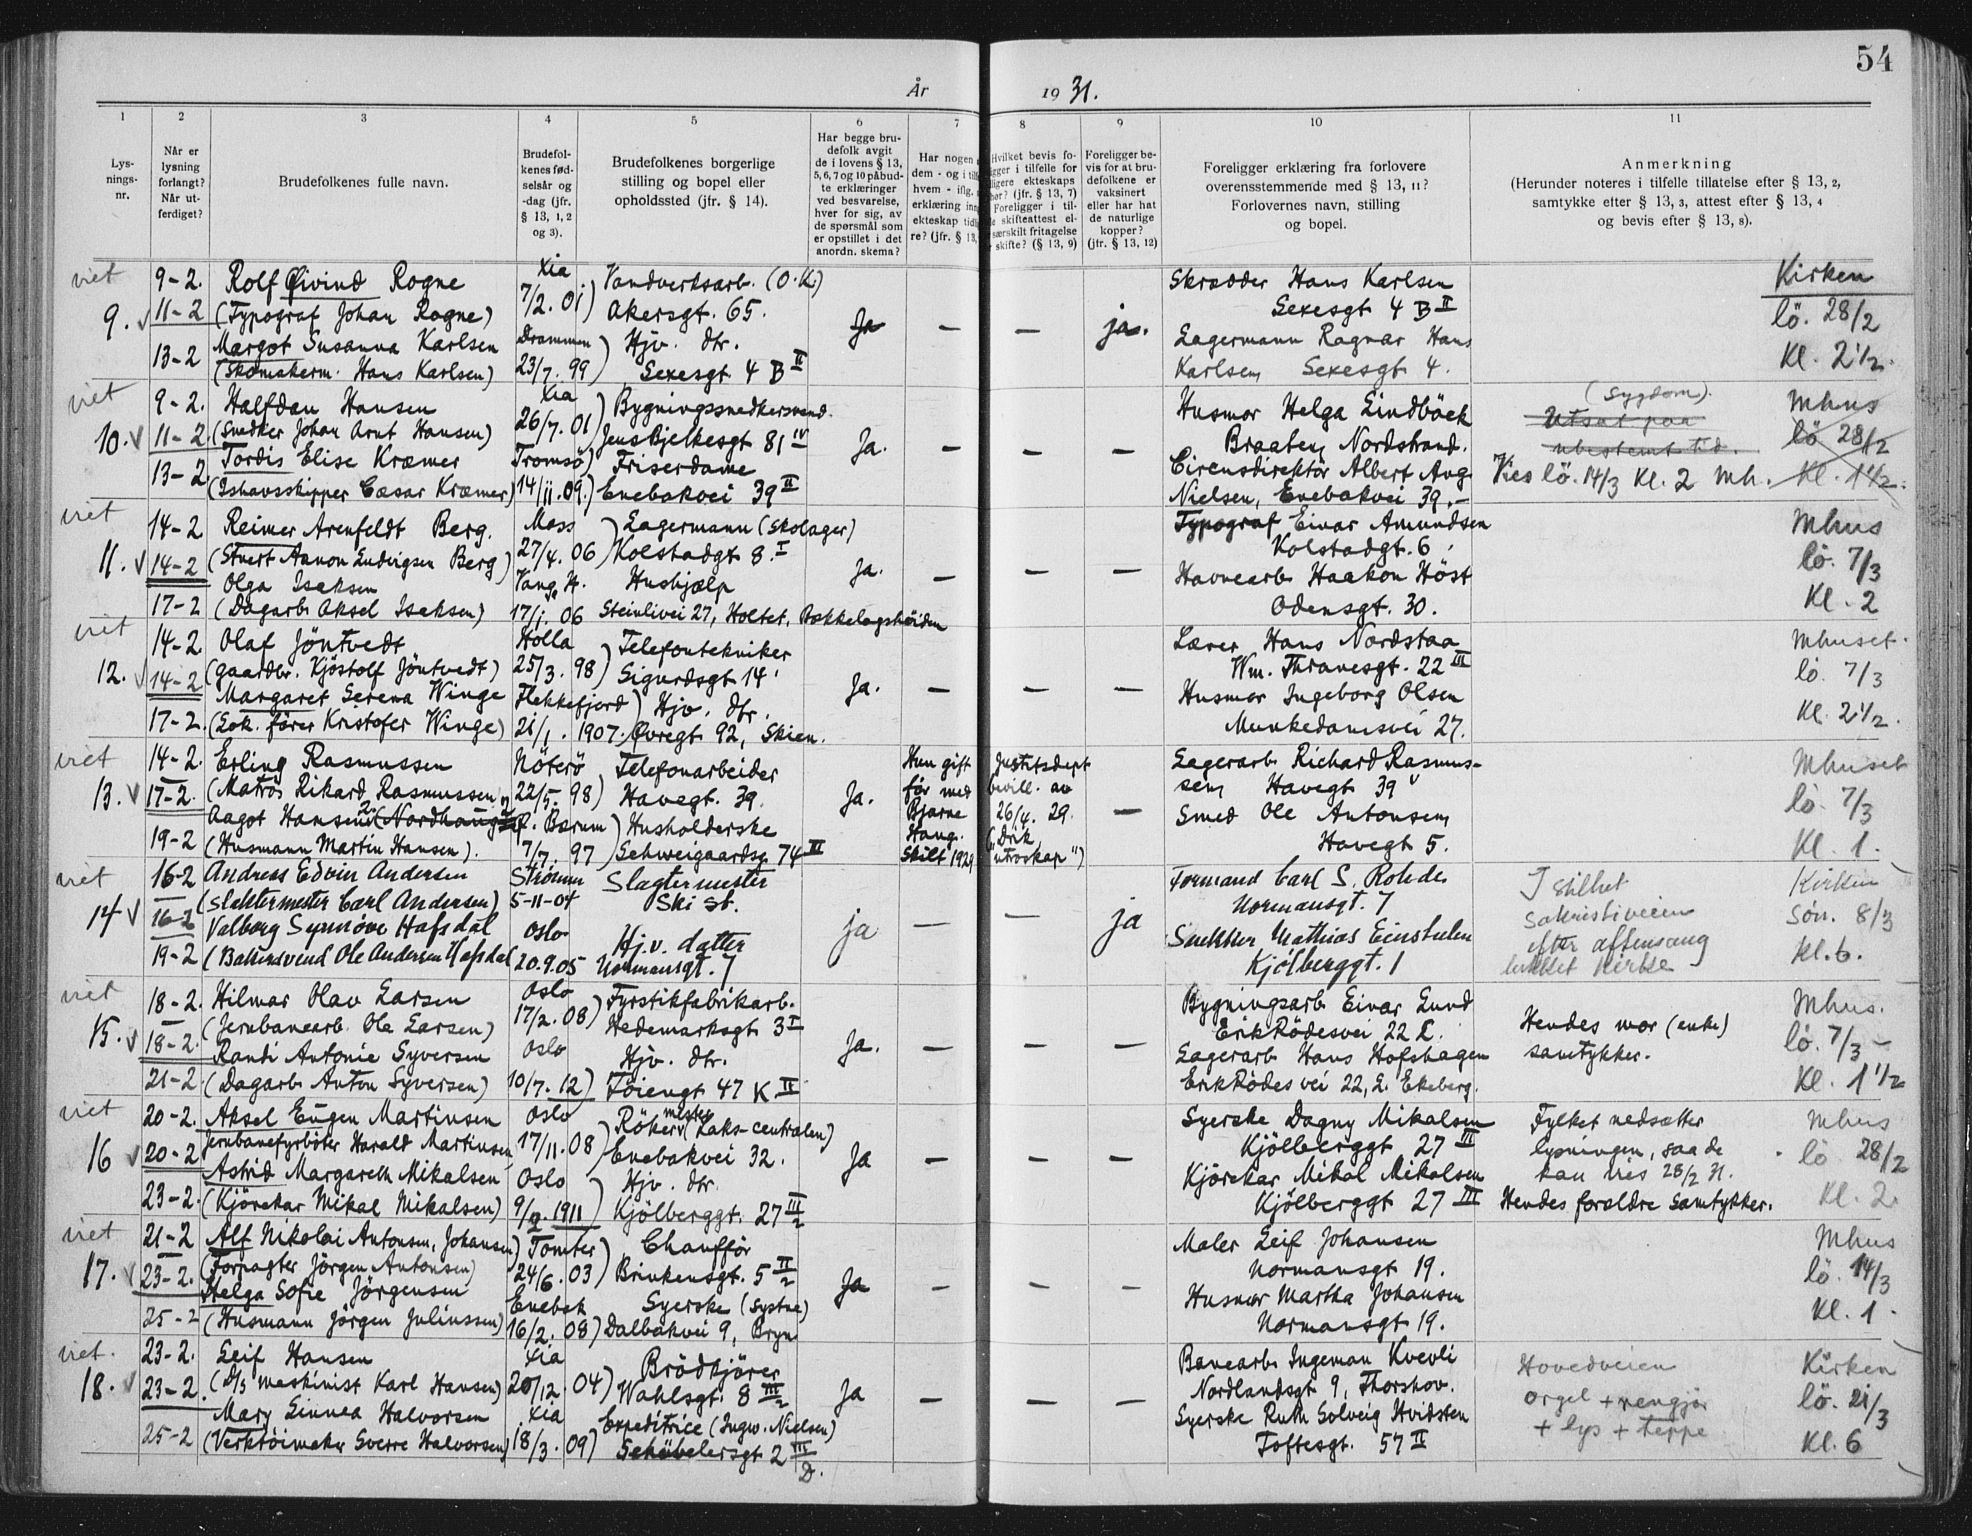 54
År 1931.
1 2 3 4 5 6 7 8 9 10 11
Lys-
nings-
nr.
Når er
lysning
forlangt?
Når ut-
ferdiget?
Brudefolkenes fulle navn.
Brudefol-
kenes fød-
selsår og
-dag (jfr.
§ 13, 1, 2
og 3).
Brudefolkenes borgerlige
stilling og bopel eller
opholdssted (jfr. § 14).
Har begge bru-
defolk avgit
de i lovens § 13,
5, 6, 7 og 10 påbud-
te erklæringer
ved besvarelse,
hver for sig, av
de spørsmål som
er opstillet i det
anordn. skema?
Har nogen
dem - og i
hvem - iflg.
erklæring
ekteskap
re? (jfr. § 13,
Hvilket bevis fo-
ligger i tilfelle for
ekteskaps
(jfr. § 13, 7)
Foreligger i til-
skifteattest el-
særskilt fritagelse
skifte? (§ 13, 9)
Foreligger be-
vis for at bru-
defolkene er
vaksinert
eller har hat
de naturlige
kopper?
(jfr. § 13, 12)
Foreligger erklæring fra forlovere
overensstemmende med § 13, 11?
Forlovernes navn, stilling
og bopel.
Anmerkning
(Herunder noteres i tilfelle tillatelse efter § 13, 2,
samtykke efter § 13, 3, attest efter § 13, 4
og bevis efter § 13, 8).
viet
9.
9-2.
11-2
13-2
Rolf Øivind Rogne
(Typograf Johan Rogne)
Margot Susanna Karlsen
(Skomakerm. Hans Karlsen)
Xia
7/2. 01
Drammen
23/7. 99
Vandverksarb. (O.K.)
Akersgt. 65.
Hjv. dtr.
Sexesgt 4 B II
Ja — — ja.
Skrædder Hans Karlsen
Sexesgt 4 B II
Lagermann Ragnar Hans
Karlsen, Sexesgt 4.
Kirken
lö. 28/2
Kl. 2 1/2.
viet
10.
9-2.
11-2.
13-2
Halfdan Hansen
(Snedker Johan Arnt Hansen)
Tordis Elise Kræmer
(Ishavsskipper Cæsar Kræmer)
Xia
26/7. 01
Tromsö
14/11. 09.
Bygningssnedkersvend.
Jens Bjelkesgt 81 IV
Friserdame
Enebakvei 39 II
Ja. — — —
Husmor Helga Lindbäck
Braaten, Nordstrand.
Circusdirektör Albert Aug
Nielsen, Enebakvei 39.-
(sygdom).
Utsat paa
ubestemt tid.
Vies lö. 14/3 Kl. 2 Mh.
Mhus
lö 28/2
Kl. 1 1/2.
viet
11.
14-2
14-2
17-2
Reimer Arenfeldt Berg.
(Stuert Aanon Ludvigsen Berg)
Olga Isaksen
(Dagarb. Aksel Isaksen)
Moss
27/4. 06
Vang, H.
17/1. 06
Lagermann (Skolager)
Kolstadgt 8. I
Hushjælp
Steinlivei 27, Holtet, Bækkelagshöiden
Ja. — — —
Typograf Einar Amundsen
Kolstadgt. 6.
Havnearb. Haakon Höst
Odensgt. 30.
Mhus
lö. 7/3
Kl. 2
viet
12.
14-2
14-2
17-2.
Olaf Jöntvedt
(Gaardbr. Kjöstolf Jöntvedt)
Margaret Serena Winge
(Lok. förer Kristofer Winge)
Holla
25/3. 98
Flekkefjord
21/1. 1907.
Telefontekniker
Sigurdsgt 14
Hjv. dtr.
Øvregt 92, Skien.
Ja. — — —
Lærer Hans Nordstaa
Wm. Thranesgt. 22 III
Husmor Ingeborg Olsen
Munkedamsvei 27.
Mhuset.
lö. 7/3
Kl. 2 1/2.
viet
13.
14-2.
17-2.
19-2
Erling Rasmussen
(Matros Rikard Rasmussen)
Aagot Hansen
(Husmann Martin Hansen).
Nöterö
22/5. 98
Bærum
7/7. 97
Telefonarbeider
Havegt. 39.
Husholderske
Schweigaardsg 74 III
Ja.
Hun gift
før med
Bjarne
Haug.
Skilt 1929
Justitsdept
bevill. av
26/4. 29.
("Drik,
utroskap")
—
Lagerarb Richard Rasmus-
sen, Havegt 39
Smed Ole Antonsen,
Havegt 5.
Mhuset
lö. 7/3
Kl. 1.
viet
14
16-2
16-2
19-2
Andreas Edvin Andersen
(Slaktermester Carl Andersen)
Valborg Synnöve Hafsdal
(Ole Andersen Hafsdal
Strömm
5-11-04
Oslo
20.9.05
Slagtermester
Ski st.
Hj.v. datter
Normansgt. 7
ja — — ja
Formand Carl S. Rohde
Normansgt. 7
Snekker Mathias Einstulen
Kjölberggt. 1
I stilhet
Sakristiveien
efter aftensang
lukket Kirke
Kirken
Søn. 8/3
Kl. 6.
viet
15.
18-2.
18-2.
21-2
Hilmar Olav Larsen
(Jernbanearb. Ole Larsen)
Randi Antonie Syversen
(Dagarb. Anton Syversen)
Oslo
17/2. 08
Oslo
10/7. 12
Fyrstikfabrikarb.
Hedemarksgt 3 I
Hjv. dtr.
Töiengt 47 K II
Ja. — — —
Bygningsarb Einar Lund
Erik Rödesvei 22 L.
Lagerarb Hans Hofshagen
Erik Rödes vei 22, L. Ekeberg.
Hendes mor (enke)
samtykker.
Mhus.
lö. 7/3 -
Kl. 1 1/2
viet
16
20-2.
20-2
23-2.
Aksel Eugen Martinsen
Jernbanefyrböter Harald Martinsen
Astrid Margareth Mikalsen
(Kjörekar Mikal Mikalsen)
Oslo
17/11. 08
Oslo
9/2. 1911
Rökeri mester (Laks-centralen)
Enebakvei 32.
Hjv. dtr.
Kjölberggt. 27 III/2
Ja — — —
Syerske Dagny Mikalsen
Kjölberggt 27 III
Kjörekar Mikal Mikalsen
Kjölberggt 27 III
Fylket nedsætter
lysningen, saa de
kan vies 28/2 31.
Hendes forældre samtykker.
Mhus
lö 28/2
Kl. 2.
viet
17.
21-2
23-2.
25-2
Alf Nikolai Antonsen, Johansen
(Forpagter Jörgen Antonsen)
Helga Sofie Jörgensen
(Husmann Jörgen Juliussen)
Tomter
24/6. 03
Enebak
16/2. 08
Chauffør
Brinkensgt. 5 II/2
Syerske (systue)
Dalbakvei 9, Bryn
Ja — — —
Maler Leif Johansen
Normansgt 19.
Husmor Martha Johansen
Normansgt 19.
Mhus
lö. 14/3
Kl. 1.
viet.
18.
23-2.
23-2.
25-2
Leif Hansen
(D/S maskinist Karl Hansen)
Mary Linnea Halvorsen
(Verktöimaker Sverre Halvorsen)
Xia
20/12. 04
Xia
18/3. 09
Brödkjörer
Wahlsgt. 8 III/2
Expeditrice (Ingw. Nielsen)
Schübelersgt 2 III/D.
Ja — — —
Banearb Ingeman Kvevli
Nordlandsgt 9, Thorshov.
Syerske Ruth Solveig Hvidsten
Toftesgt. 57 II
Hovedveien
orgel + rengjør
+ lys + teppe
Kirken
lö. 21/3
Kl. 6